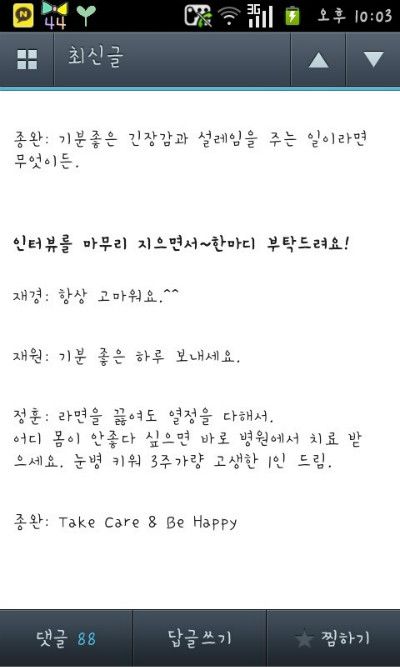 44
3G
오후 10:03
최신글
종완: 기분좋은 긴장감과 설레임을 주는 일이라면
무엇이든.
인터뷰를 마무리 지으면서~한마디 부탁드려요!
재경: 항상 고마워요.^^
재원: 기분 좋은 하루 보내세요.
정훈: 라면을 끓여도 열정을 다해서.
어디 몸이 안좋다 싶으면 바로 병원에서 치료 받
으세요. 눈병 키워 3주가량 고생한 1인 드림.
종완: Take Care & Be Happy
댓글 88 답글쓰기 찜하기